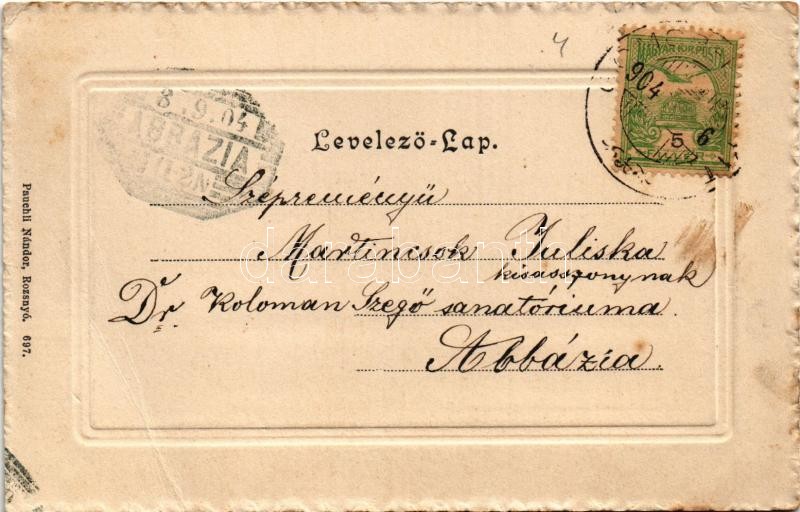 4
MAGYAR KIR. POSTA
904
6
5
8.9.04
ABBAZIA
Levelező=Lap.
Szépreményű
Martincsok Juliska
kisasszonynak
Dr. Koloman Szegő sanatóriuma
Abbázia.
Pauchli Nándor, Rozsnyó. 697.
darabanth